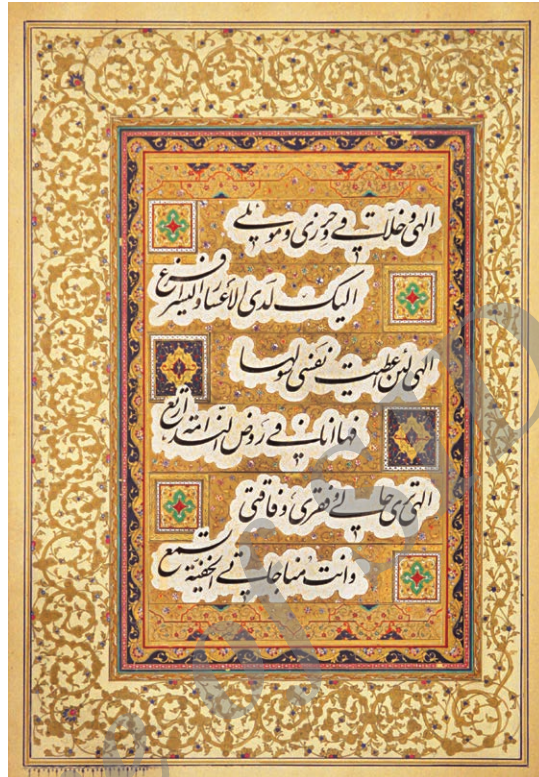 الهي وخلاقي وحرزي وموئلي
اليك لدى الأعسار واليسر افزع
الهي لئن اعطيت نفسي سؤلها
فها انا في روض الندامة ارتع
الهي ترى حالي وفقري وفاقتي
وانت مناجاتي الخفية تسمع